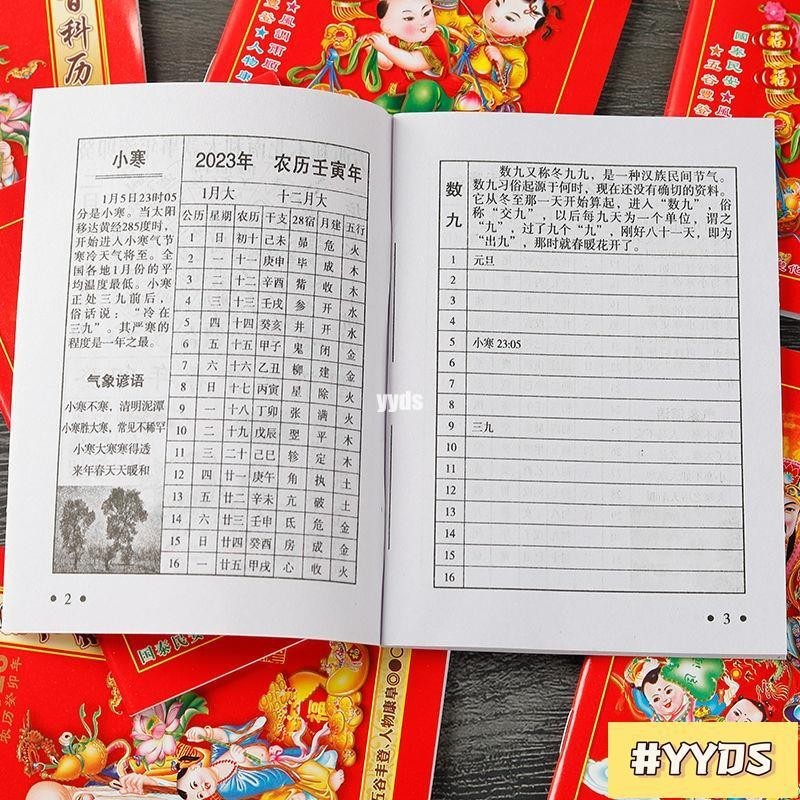 百科历
★風調雨順
★人物康
国泰民安★
五谷豐登★
福
小寒
1月5日23时05
分是小寒。当太阳
移达黄经285度时,
开始进入小寒气节
寒冷天气将至。全
国各地1月份的平
均温度最低。小寒
正处三九前后,
俗话说:“冷在
三九”。其严寒的
程度是一年之最。
气象谚语
小寒不寒,清明泥潭
小寒胜大寒,常见不稀罕
小寒大寒寒得透
来年春天天暖和
2023年 农历壬寅年
1月大 十二月大
公历 星期 农历 干支 28宿 月建 五行
1 日 初十 己未 昴 危 火
2 一 十一 庚申 毕 成 木
3 二 十二 辛酉 觜 收 木
4 三 十三 壬戌 参 开 水
5 四 十四 癸亥 井 开 水
6 五 十五 甲子 鬼 闭 金
7 六 十六 乙丑 柳 建 金
8 日 十七 丙寅 星 除 火
9 一 十八 丁卯 张 满 火
10 二 十九 戊辰 翌 平 木
11 三 二十 己巳 轸 定 木
12 四 廿一 庚午 角 执 土
13 五 廿二 辛未 亢 破 土
14 六 廿三 壬申 氐 危 金
15 日 廿四 癸酉 房 成 金
16 一 廿五 甲戌 心 收 火
• 2 •
数九
数九又称冬九九,是一种汉族民间节气。
数九习俗起源于何时,现在还没有确切的资料。
它从冬至那一天开始算起,进入“数九”,俗
称“交九”,以后每九天为一个单位,谓之
“九”,过了九个“九”,刚好八十一天,即为
“出九”,那时就春暖花开了。
1 元旦
2
3
4
5 小寒 23:05
6
7
8
9 三九
10
11
12
13
14
15
16
• 3 •
yyds
国泰民安
农历癸卯年
福
五谷丰登、人物康阜
#YYDS